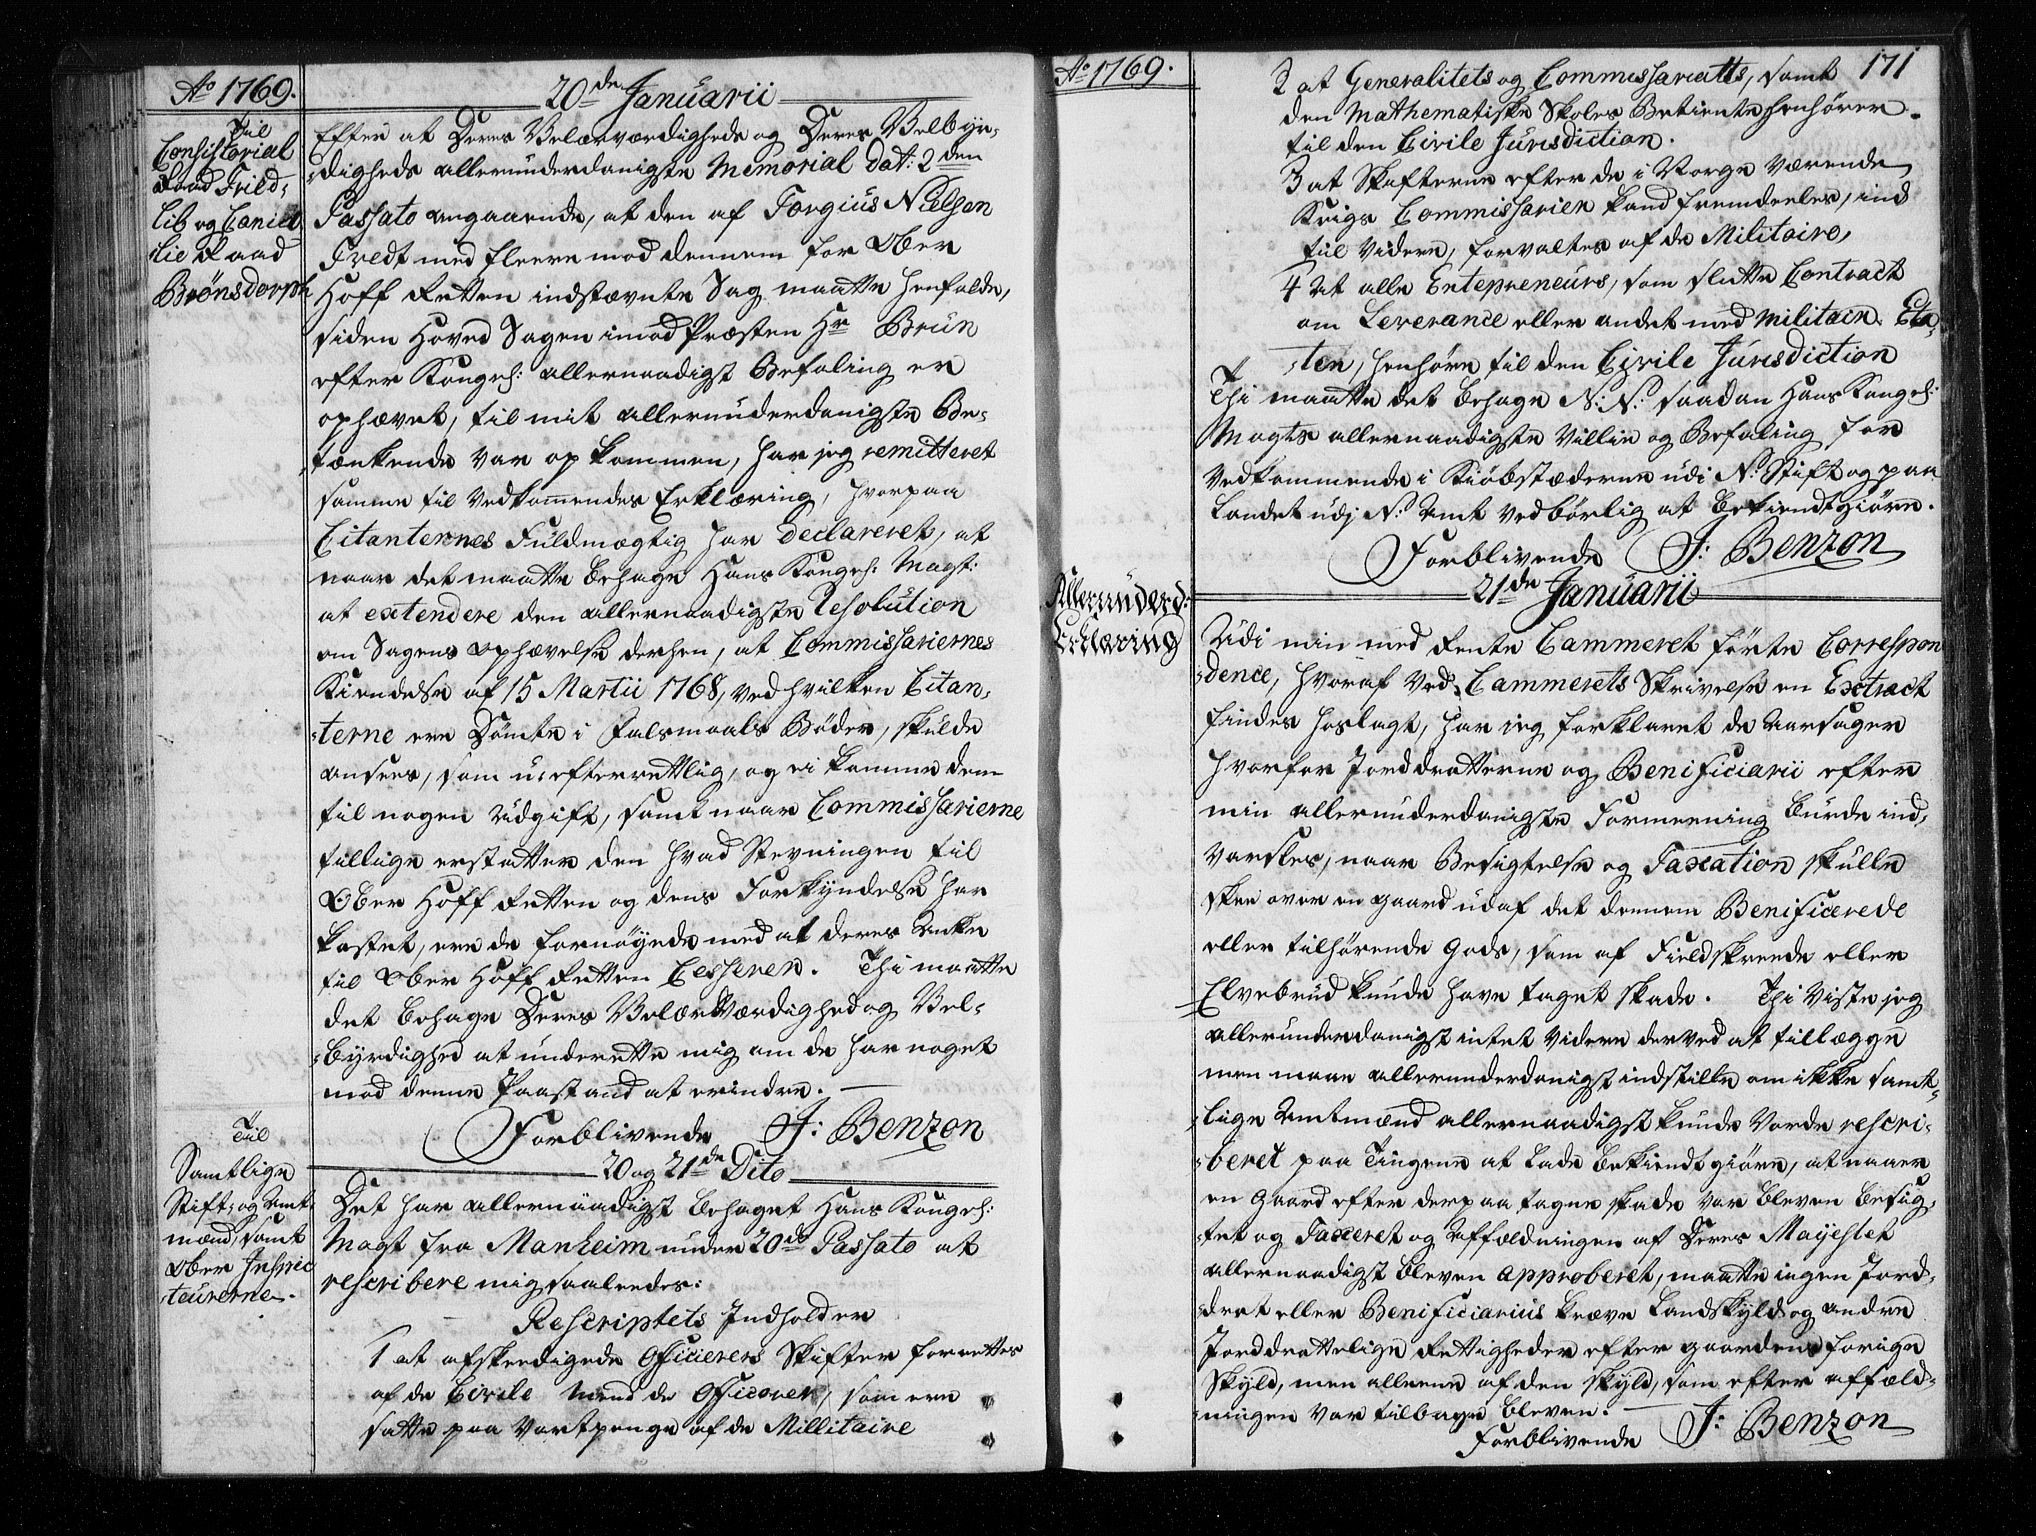 Ao 1769.
20de Januarii
Til
Consistorial
Raad Frid-
lib og Cancel-
lie Raad
Brönsdorph
Efter at Deres Velærværdigheds og Deres Velbyr-
digheds allerunderdanigste Memorial dat: 2den
Passato angaaende, at den af Torgius Nielsen
Tredt med fleere mod dennem for Ober
Hoff Retten indstævnte Sag maatte henfalde,
siden Hoved Sagen imod Præsten Hr Brün
efter Kongel: allernaadigst Befaling er
ophævet, til mit allerunderdanigste Be-
tænkende var op kommen, har jeg remitteret
samme til vedkommendes Erklæring, hvorpaa
Citanternes Fuldmægtig har declareret, at
naar det maatte behage Hans Kongel: Mayst:
at extendere den allernaadigste Resolution
om Sagens ophævelse derhen, at Commissariernes
Kiendelse af 15 Martii 1768, ved hvilken Citan-
terne ere Dömte i Falsmaals Böder, skulde
ansees, som u-efterrettlig, og ei komme dem
til nogen Udgift, samt naar Commissarierne
tillige erstatter den hvad Stevningen til
Ober Hoff Retten og dens Forkyndelse har
kostet, ere de fornöyede med at deres Anke
til Ober Hoff Retten Cesserer. Thi maatte
det behage Deres Velær Værdighed og Vel-
byrdighed at underrette mig om de har noget
mod denne Paastand at erindre.
Forblivende J: Benzon
20 og 21de Dito
Til
Samtlige
Stift- og Amt-
mænd, samt
Ober Inspec
teurerne.
Det har allernaadigst behaget Hans Kongel:
Mayst fra Manheim under 20de Passato at
rescribere mig saaledes:
Rescriptets Indhold er
1 at afskeedigede Officierers Skifter forrettes
af de Civile mend de Officerer, som ere
satte paa Vartpenge af de Millitaire
Ao 1769.
171
2 at Generalitets og Commissariatts, samt
den Mathematiske Skoles Betiente henhörer
til den Civile Jurisdiction.
3 at Skifterne efter de i Norge værende
Krigs Commissarier kand fremdeeles, ind
til videre, forvaltes af de Militaire,
4 At alle Entepreneurs, som slutte Contract
om Leverance eller andet med Militair Eta-
ten, henhöre til den Civile Jurisdiction
Thi maatte det behage N: N: saadan Hans Kongel:
Mayts allernaadigste Villie og Befaling for
Vedkommende i Kiöbstæderne udi N: Stift og paa
Landet udj N: Amt vedbörlig at bekiendtgiöre.
Forblivende J: Benzon
21de Januarii
Alleründerd:
Erklæring
Udi min med Rente Cammeret förte Correspon
dence, hvoraf ved Cammerets Skrivelse en Extract
findes hoslagt, har jeg forklaret de Aarsager
hvorfor Jorddrotterne og Benificiarii efter
min allerunderdanigste Formeening burde ind-
varsles, naar Besigtelse og Taxation skulle
skee over en gaard udaf det dennem Benificerede
eller tilhörende Gods, som af Fieldskreede eller
Elvebrud kunde have taget skade. Thi viste jeg
allerunderdanigst intet videre derved at tillægge
men maae allerunderdanigst indstille om ikke samt-
lige Amtmænd allernaadigst kunde vorde rescri-
beret paa Tingene at lade bekiendtgiöre, at naar
en Gaard efter derpaa tagne skade var bleven besig-
tet og Taxeret og Affældningen af Deres Mayestet
allernaadigst bleven approberet, maatte ingen Jord-
drot eller Benificiarius kræve Landskyld og andre
Jorddrottelige Rettigheder efter gaardens forige
Skyld, men alleene af den skyld, som efter affæld-
ningen var tilbage bleven.
Forblivende J: Benzon